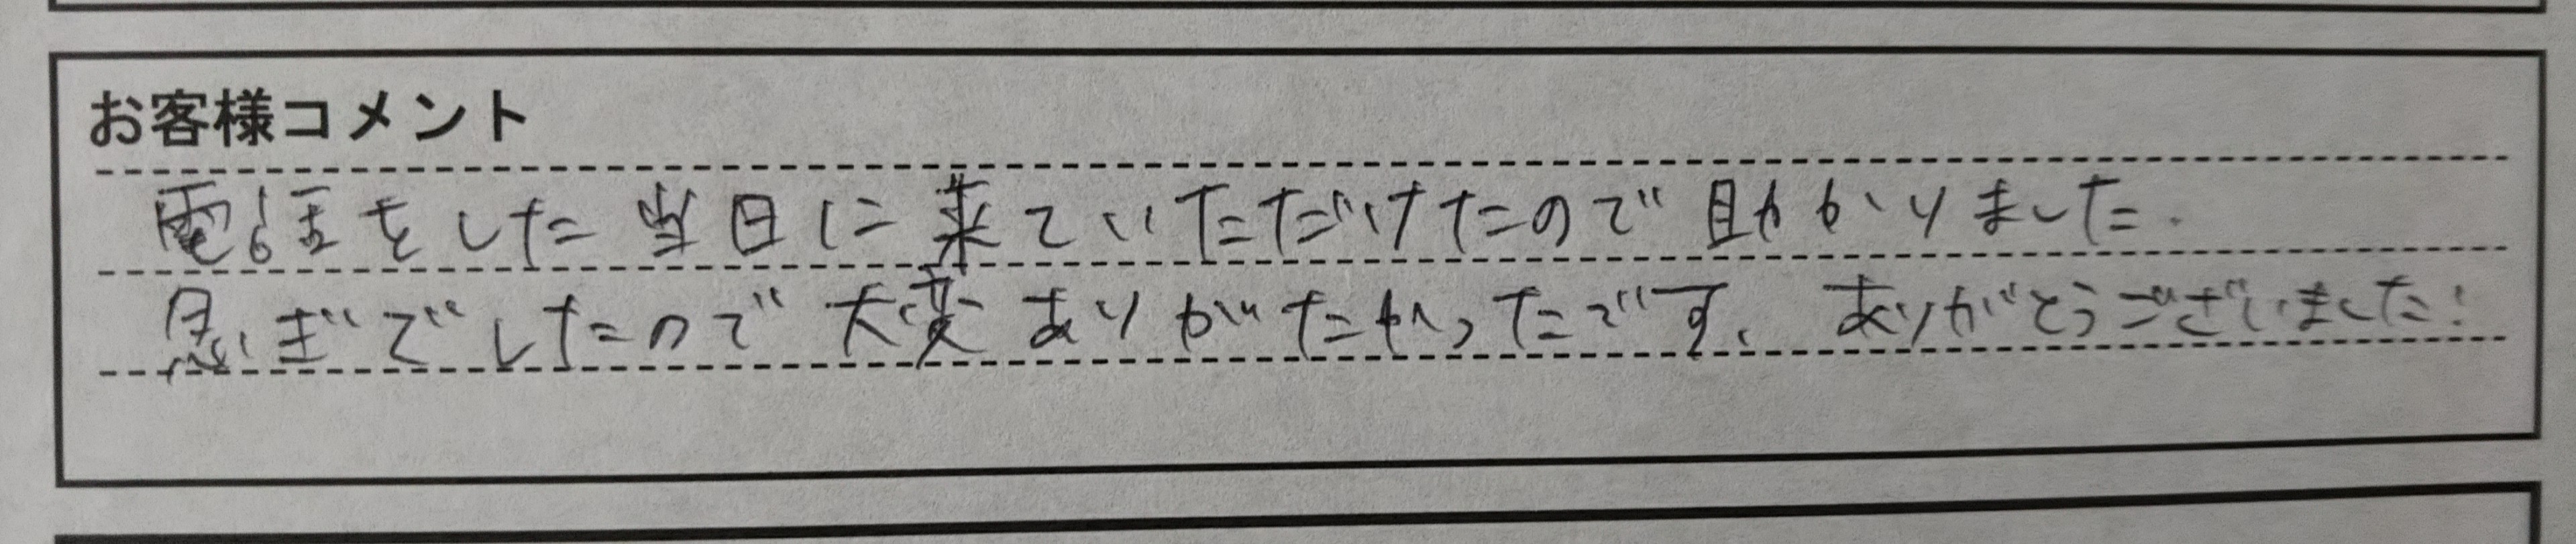 お客様コメント
電話をした当日に来ていただけたので助かりました.
急ぎでしたので大変ありがたかったです、ありがとうございました!